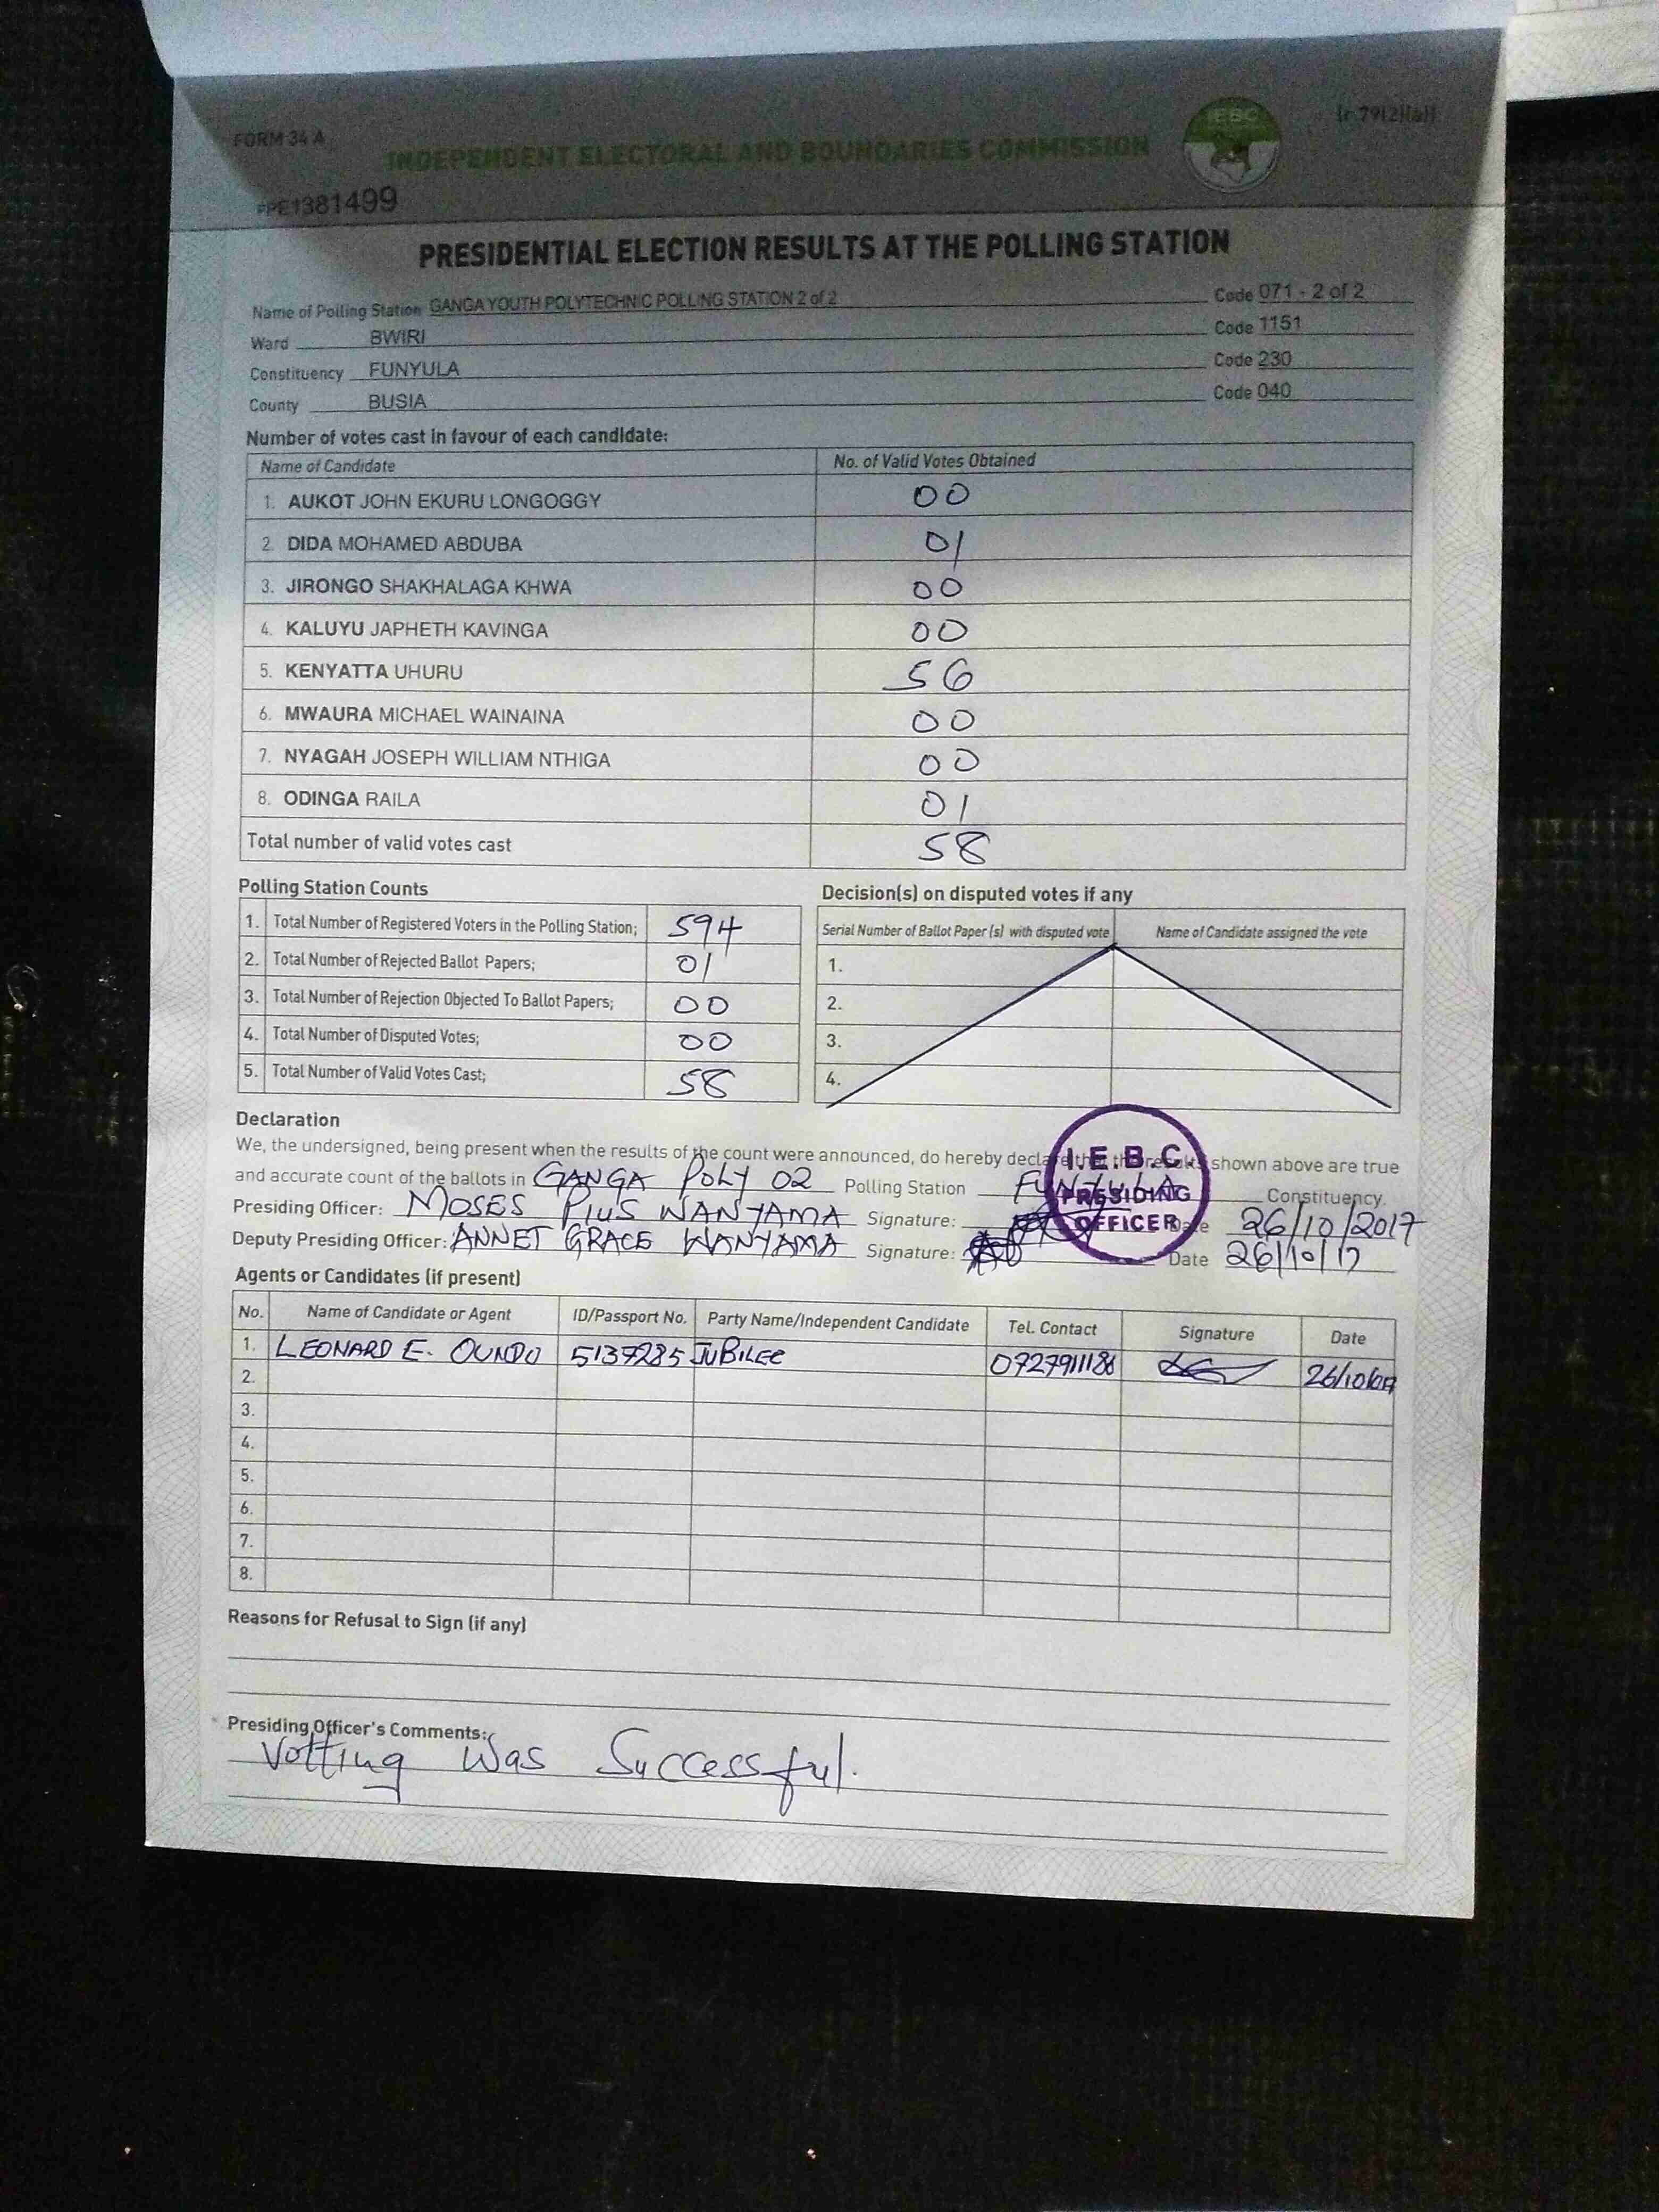 FORM 34 A
(r 79(2)(a))
INDEPENDENT ELECTORAL AND BOUNDARIES COMMISSION
IEBC
PPE1381499
PRESIDENTIAL ELECTION RESULTS AT THE POLLING STATION
Name of Polling Station GANGA YOUTH POLYTECHNIC POLLING STATION 2 of 2 Code 071 - 2 of 2
Ward BWIRI Code 1151
Constituency FUNYULA Code 230
County BUSIA Code 040
Number of votes cast in favour of each candidate:
Name of Candidate No. of Valid Votes Obtained
1. AUKOT JOHN EKURU LONGOGGY 00
2. DIDA MOHAMED ABDUBA 01
3. JIRONGO SHAKHALAGA KHWA 00
4. KALUYU JAPHETH KAVINGA 00
5. KENYATTA UHURU 56
6. MWAURA MICHAEL WAINAINA 00
7. NYAGAH JOSEPH WILLIAM NTHIGA 00
8. ODINGA RAILA 01
Total number of valid votes cast 58
Polling Station Counts
1. Total Number of Registered Voters in the Polling Station; 594
2. Total Number of Rejected Ballot Papers; 01
3. Total Number of Rejection Objected To Ballot Papers; 00
4. Total Number of Disputed Votes; 00
5. Total Number of Valid Votes Cast; 58
Decision(s) on disputed votes if any
Serial Number of Ballot Paper (s) with disputed vote Name of Candidate assigned the vote
1.
2.
3.
4.
Declaration
We, the undersigned, being present when the results of the count were announced, do hereby declare that the results shown above are true
and accurate count of the ballots in GANGA POLY 02 Polling Station FUNYULA Constituency.
Presiding Officer: MOSES PIUS WANYAMA Signature: Date 26/10/2017
Deputy Presiding Officer: ANNET GRACE WANYAMA Signature: Date 26/10/17
I.E.B.C.
PRESIDING
OFFICER
Agents or Candidates (if present)
No. Name of Candidate or Agent ID/Passport No. Party Name/Independent Candidate Tel. Contact Signature Date
1. LEONARD E. OUNDO 5137285 JUBILEE 0727911186 26/10/017
2.
3.
4.
5.
6.
7.
8.
Reasons for Refusal to Sign (if any)
Presiding Officer's Comments:
Votting was Successful.